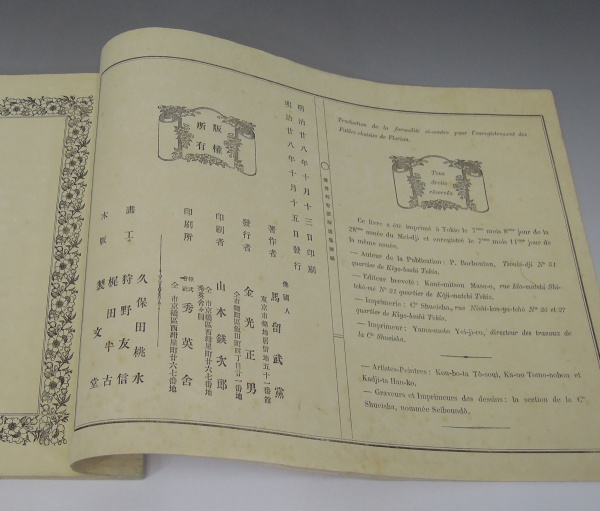 明治廿八年十月十三日印刷
明治廿八年十月十五日發行
版權
所有
著作者
佛國人
馬留武黨
東京市築地居留地五十一番館
發行者
金光正男
印刷者
山本鉄次郎
全市京橋區西紺屋町廿六七番地
秀英舍
印刷所
株式會社
秀英舍
全市京橋區西紺屋町廿六七番地
畫工
久保田桃水
狩野友信
梶田半古
木版
製文堂
Traduction de la formalité ci-contre pour l'enregistrement des
Fables choisies de Florian.
Tous
droits
réservés
Ce livre a été imprimé à Tokio le 7ème mois 8ème jour de la
28ème année de Mei-dji et enregistré le 7ème mois 11ème jour de
la même année.
— Auteur de la Publication: P. Barboutau, Tsoukidji No 51
quartier de Kiyo-bashi Tokio.
— Editeur breveté: Kané-mitsou Masa-o, rue Iida-matchi Shi-
tchô-mé No 21 quartier de Kôji-matchi Tokio.
— Imprimerie: Cie Shueisha, rue Nishi-kon-ya-tchô Nos 26 et 27
quartier de Kiyo-bashi Tokio.
— Imprimeur: Yama-moto Tet-ji-ro, directeur des travaux de
la Cie Shueisha.
— Artistes-Peintres: Kou-bo-ta Tô-soui, Ka-no Tomo-nobou et
Kadji-ta Han-ko.
— Graveurs et Imprimeurs des dessins: la section de la Cie
Shueisha, nommée Seiboundô.